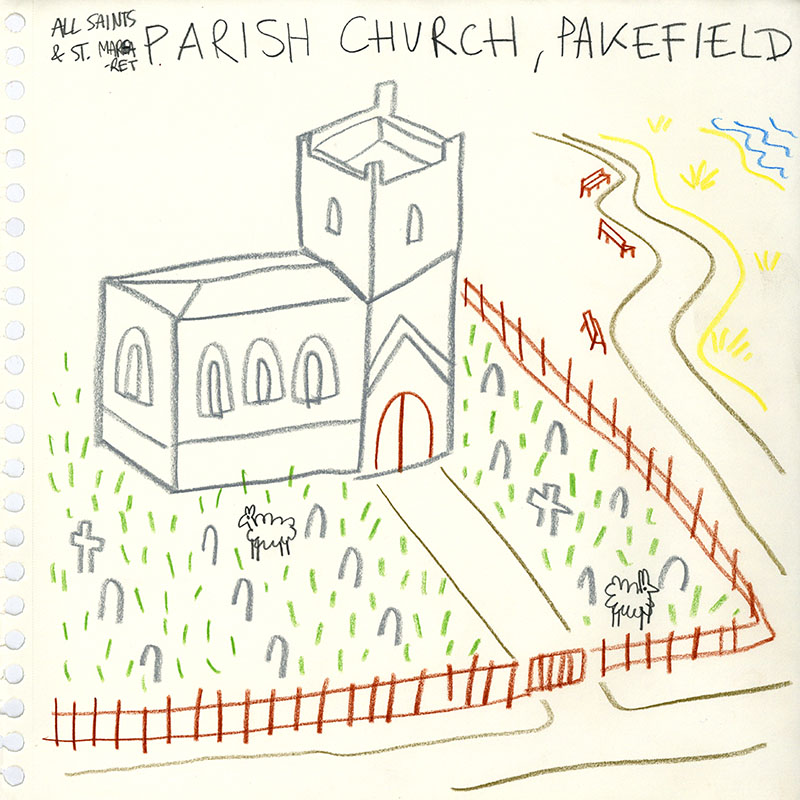 ALL SAINTS
& ST. MARGA
-RET
PARISH CHURCH, PAKEFIELD